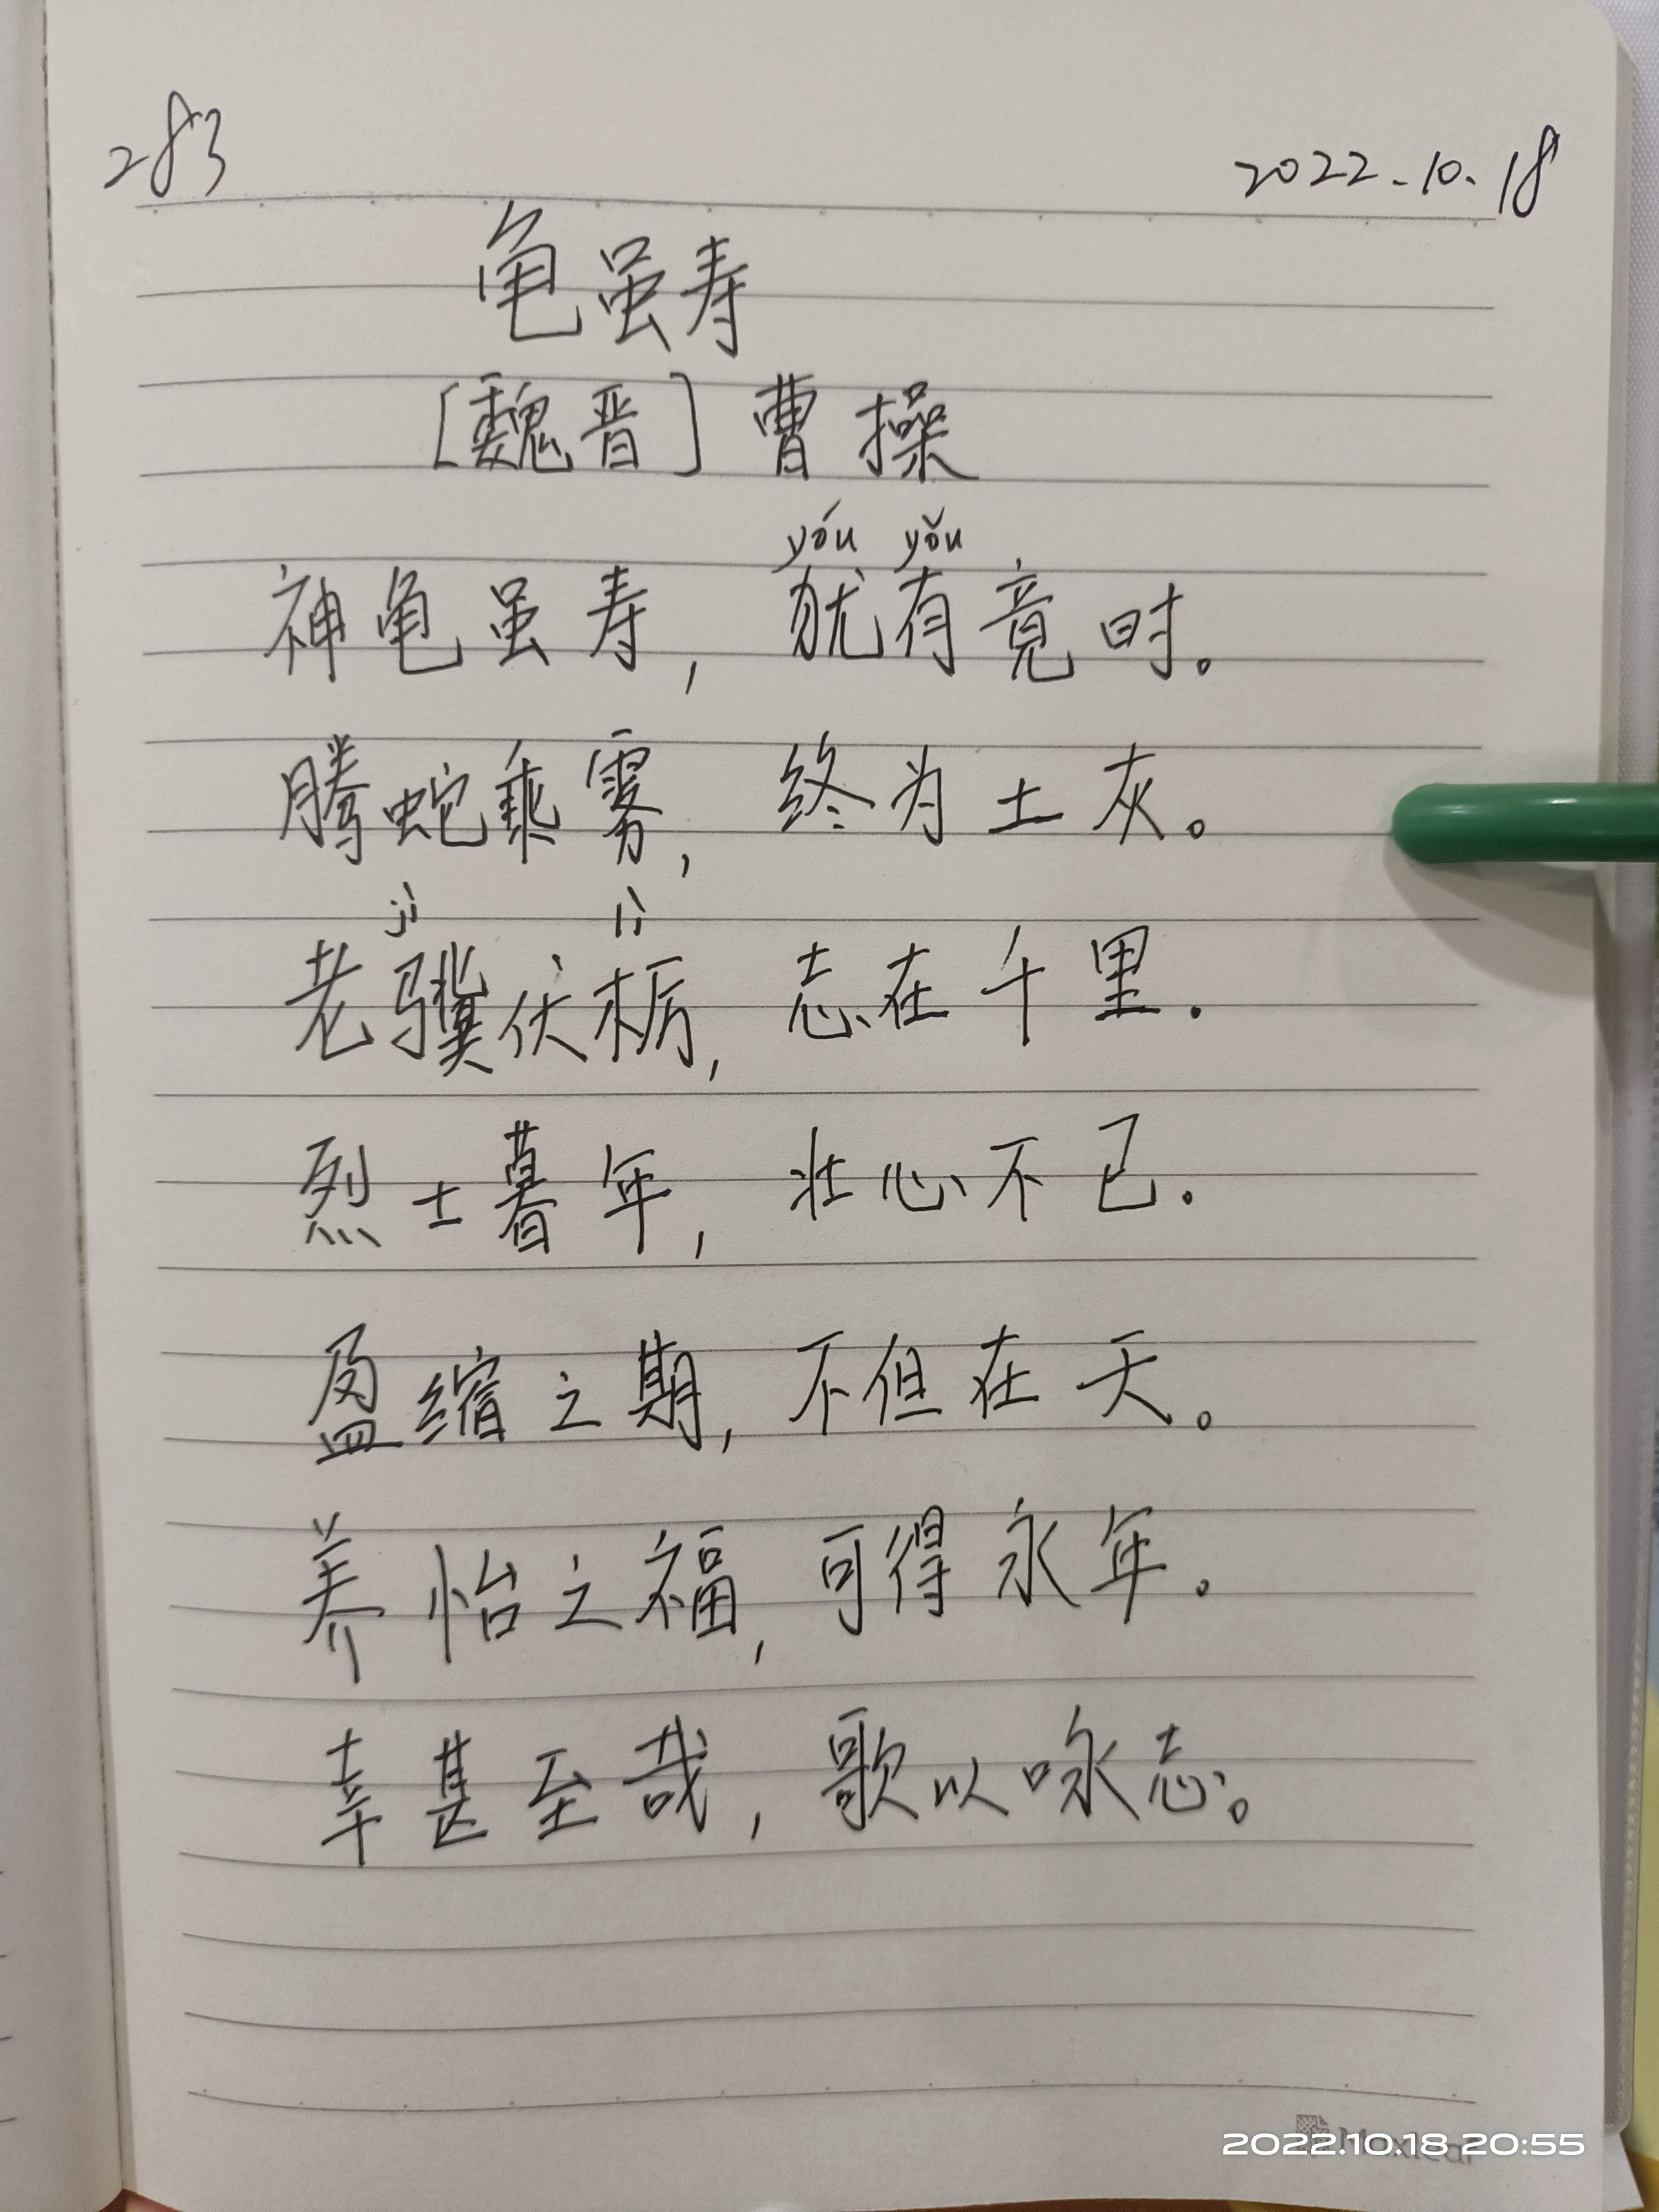 283 2022.10.18
龟虽寿
[魏晋] 曹操
yóu yǒu
神龟虽寿, 犹有竟时。
腾蛇乘雾, 终为土灰。
jì lì
老骥伏枥, 志在千里.
烈士暮年, 壮心不已.
盈缩之期, 不但在天。
养怡之福, 可得永年。
幸甚至哉, 歌以咏志。
2022.10.18 20:55